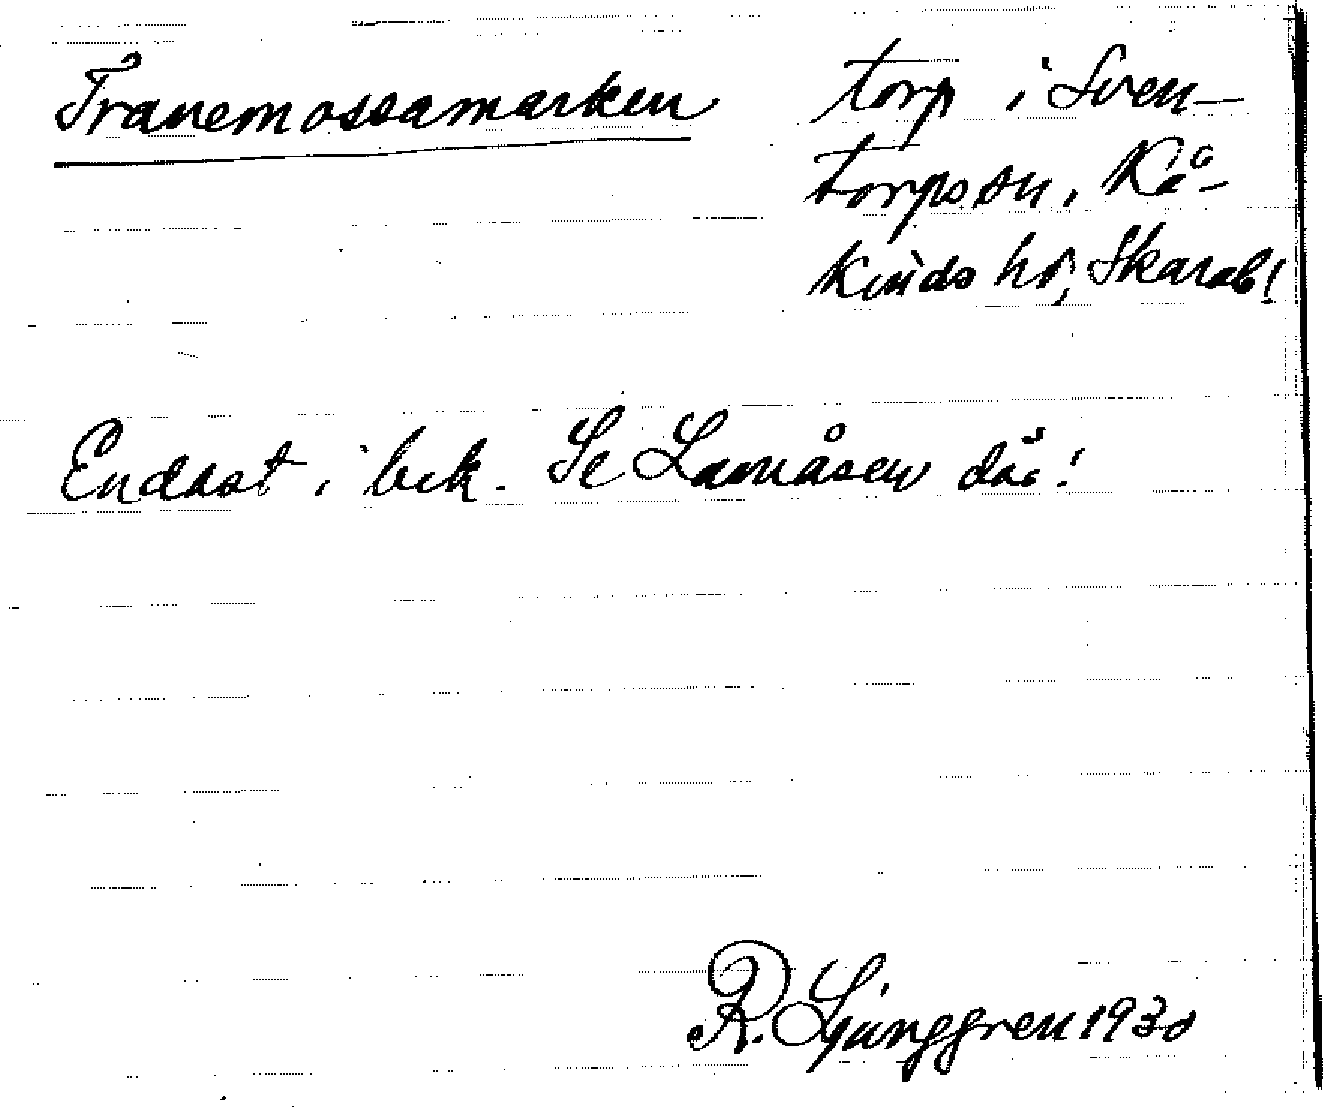 Tranemossamarken
torp i Sven-
torps sn, Kå-
kinds hd, Skarab!
Endast i bek. Se Lamåsen där!
R. Ljunggren 1930